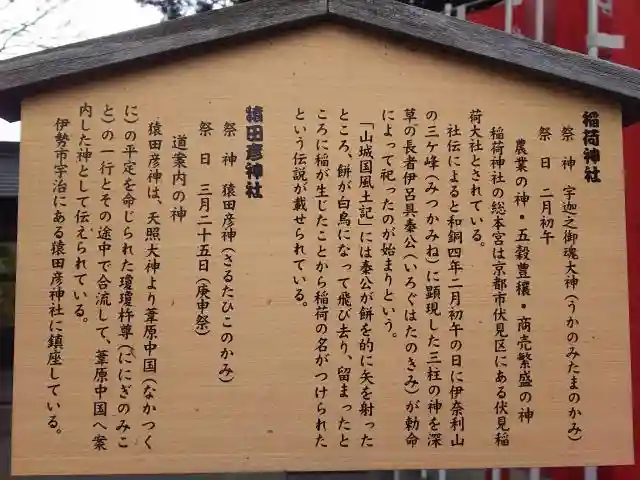 稲荷神社
祭　神　宇迦之御魂大神（うかのみたまのかみ）
祭　日　二月初午
農業の神・五穀豊穣・商売繁盛の神
稲荷神社の総本宮は京都市伏見区にある伏見稲
荷大社とされている。
社伝によると和銅四年二月初午の日に伊奈利山
の三ケ峰（みつかみね）に顕現した三柱の神を深
草の長者伊呂具秦公（いろぐはたのきみ）が勅命
によって祀ったのが始まりという。
「山城国風土記」には秦公が餅を的に矢を射った
ところ、餅が白鳥になって飛び去り、留まったと
ころに稲が生じたことから稲荷の名がつけられた
という伝説が載せられている。
猿田彦神社
祭　神　猿田彦神（さるたひこのかみ）
祭　日　三月二十五日（庚申祭）
道案内の神
猿田彦神は、天照大神より葦原中国（なかつく
に）の平定を命じられた瓊瓊杵尊（ににぎのみこ
と）の一行とその途中で合流して、葦原中国へ案
内した神として伝えられている。
伊勢市宇治にある猿田彦神社に鎮座している。